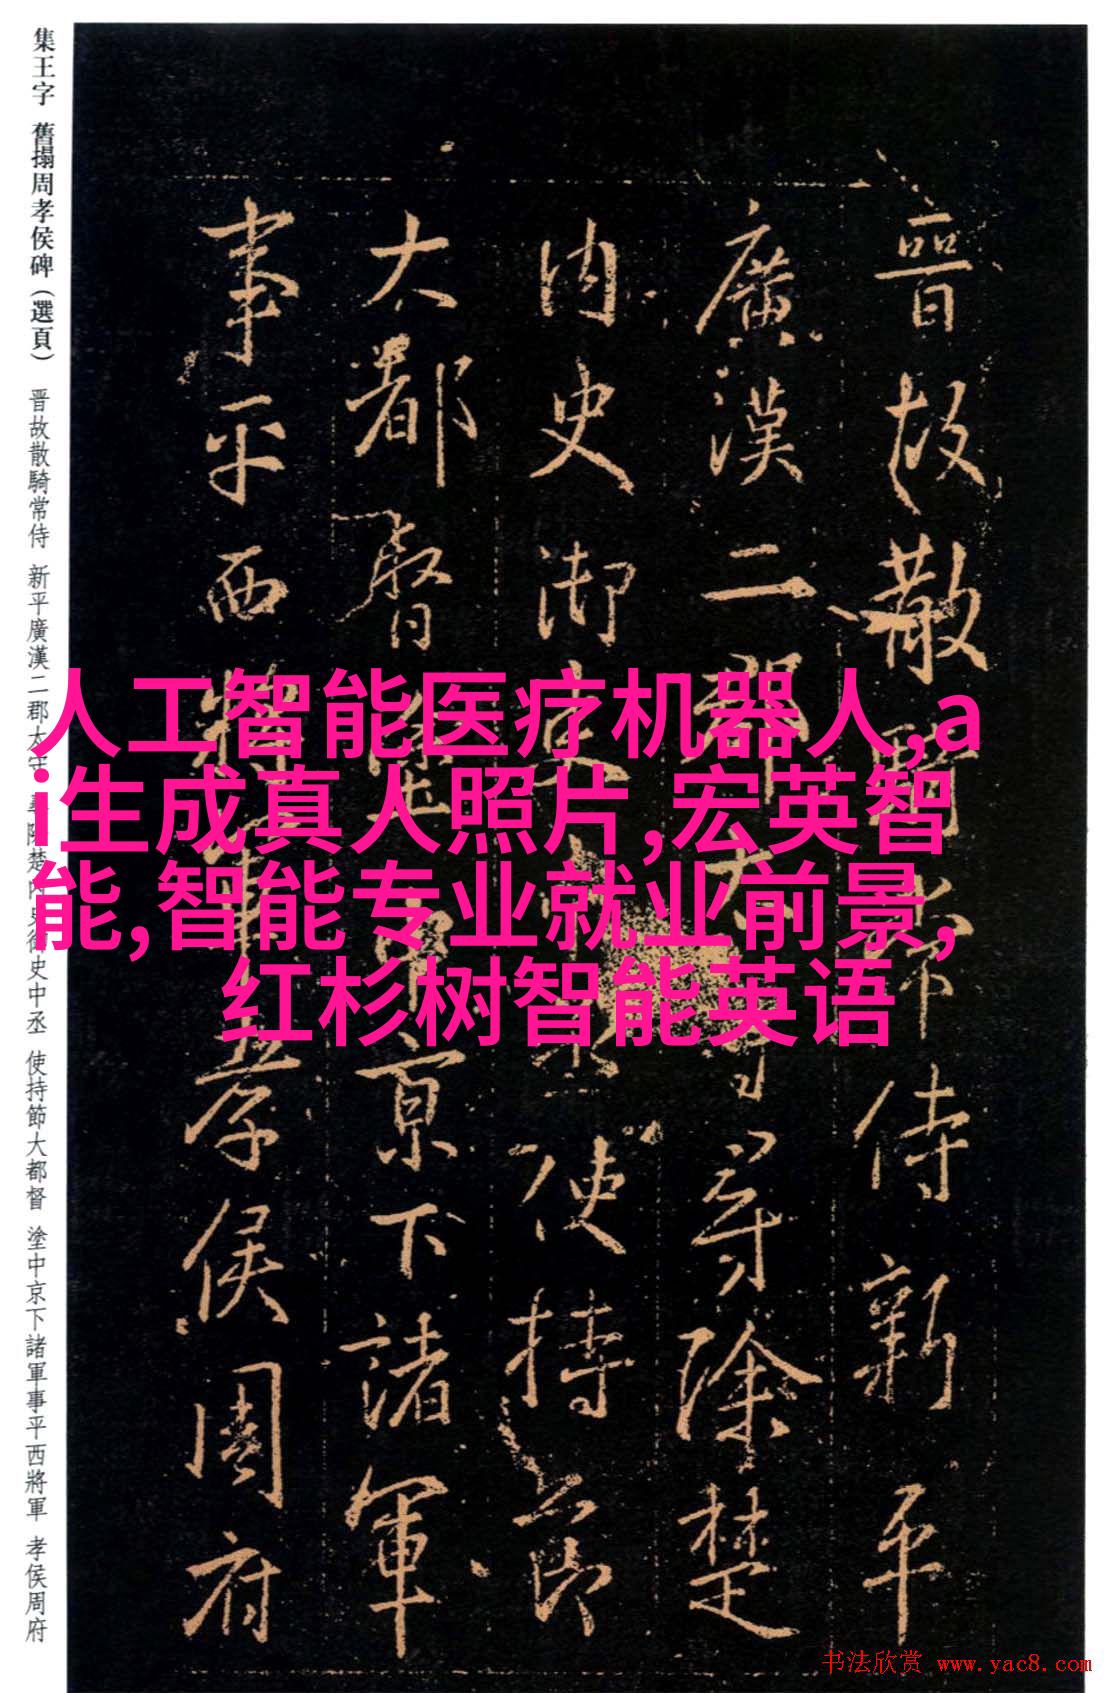 集王字 舊搨周孝侯碑（選頁） 晋故散騎常侍 新平廣漢二郡太 楚 史 史中丞 使持節大都督 塗中京下諸軍事平西將軍 孝侯周府
晉故散騎常侍新平
廣漢二郡太守尋除楚
内史御史中丞使持節
大都督塗中京下諸軍
事平西將軍孝侯周府
人工智能医疗机器人,a
i生成真人照片,宏英智
能,智能专业就业前景,
红杉树智能英语
书法欣赏 www.yac8.com